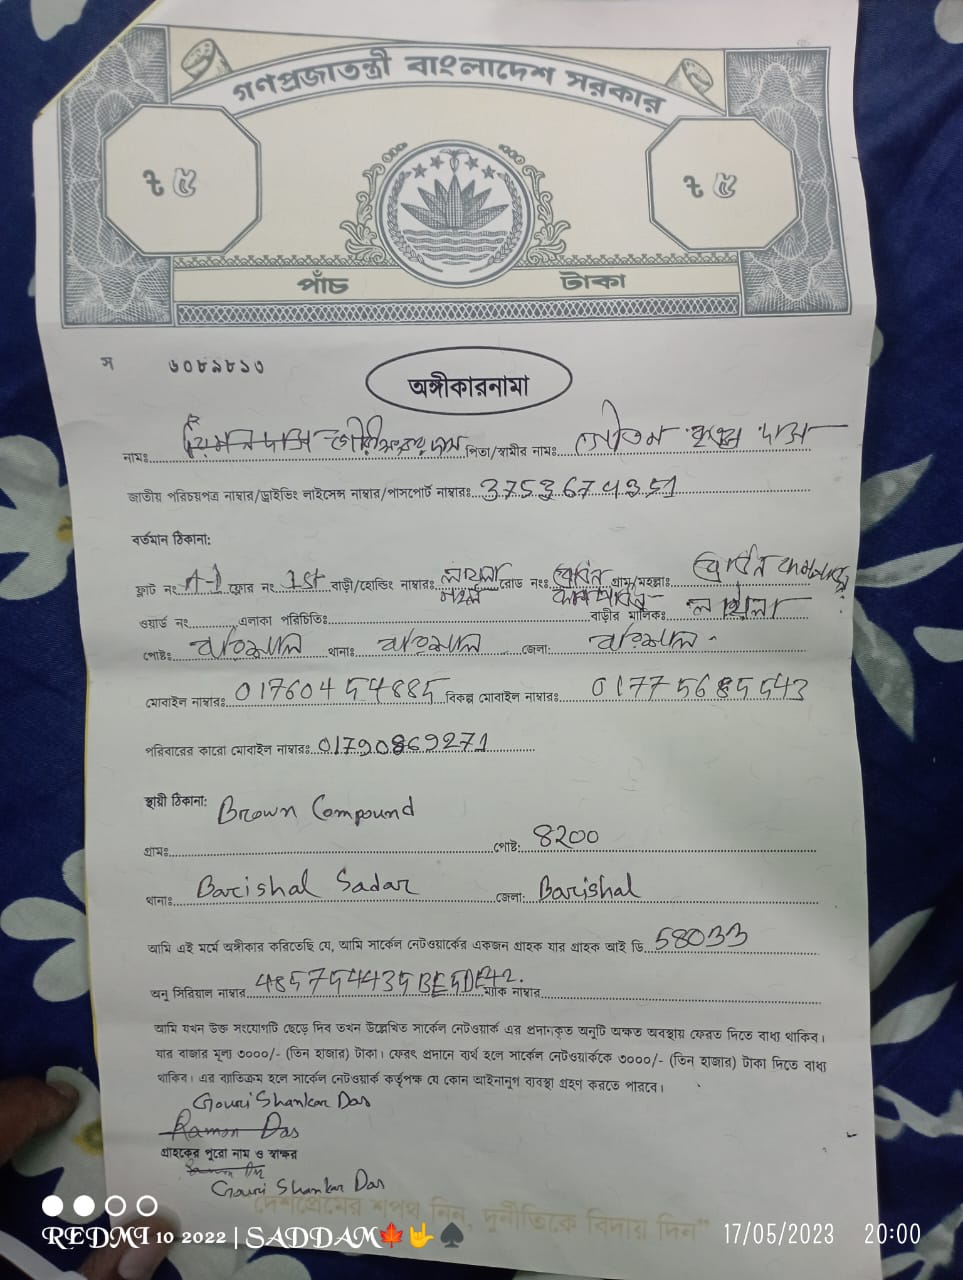 গণপ্রজাতন্ত্রী বাংলাদেশ সরকার
৳ ৫ ৳ ৫
পাঁচ টাকা
স ৬০৮৯৮১৩
অঙ্গীকারনামা
নামঃ পিতা/স্বামীর নামঃ গৌতম কৃষ্ণ দাস
জাতীয় পরিচয়পত্র নাম্বার/ড্রাইভিং লাইসেন্স নাম্বার/পাসপোর্ট নাম্বারঃ 3753674351
বর্তমান ঠিকানা:
ফ্লাট নং A-1 ফ্লোর নং 1st বাড়ী/হোল্ডিং নাম্বারঃ রোড নংঃ গ্রাম/মহল্লাঃ
ওয়ার্ড নং এলাকা পরিচিতিঃ বাড়ীর মালিকঃ
পোষ্টঃ বরিশাল থানাঃ বরিশাল জেলা: বরিশাল
মোবাইল নাম্বারঃ 01760454885 বিকল্প মোবাইল নাম্বারঃ 01775685543
পরিবারের কারো মোবাইল নাম্বারঃ 01790869271
স্থায়ী ঠিকানা: Brown Compound
গ্রামঃ পোষ্ট: 8200
থানাঃ Barishal Sadar জেলা: Barishal
আমি এই মর্মে অঙ্গীকার করিতেছি যে, আমি সার্কেল নেটওয়ার্কের একজন গ্রাহক যার গ্রাহক আই ডি 58033
অনু সিরিয়াল নাম্বার ম্যাক নাম্বার
আমি যখন উক্ত সংযোগটি ছেড়ে দিব তখন উল্লেখিত সার্কেল নেটওয়ার্ক এর প্রদানকৃত অনুটি অক্ষত অবস্থায় ফেরত দিতে বাধ্য থাকিব।
যার বাজার মূল্য ৩০০০/- (তিন হাজার) টাকা। ফেরৎ প্রদানে ব্যর্থ হলে সার্কেল নেটওয়ার্ককে ৩০০০/- (তিন হাজার) টাকা দিতে বাধ্য
থাকিব। এর ব্যতিক্রম হলে সার্কেল নেটওয়ার্ক কর্তৃপক্ষ যে কোন আইনানুগ ব্যবস্থা গ্রহণ করতে পারবে।
Gouri Shankar Das
Ramon Das
গ্রাহকের পুরো নাম ও স্বাক্ষর
Gouri Shankar Das
দেশপ্রেমের শপথ নিন, দুর্নীতিকে বিদায় দিন"
REDMI 10 2022 | SADDAM🍁🤟♠ 17/05/2023 20:00